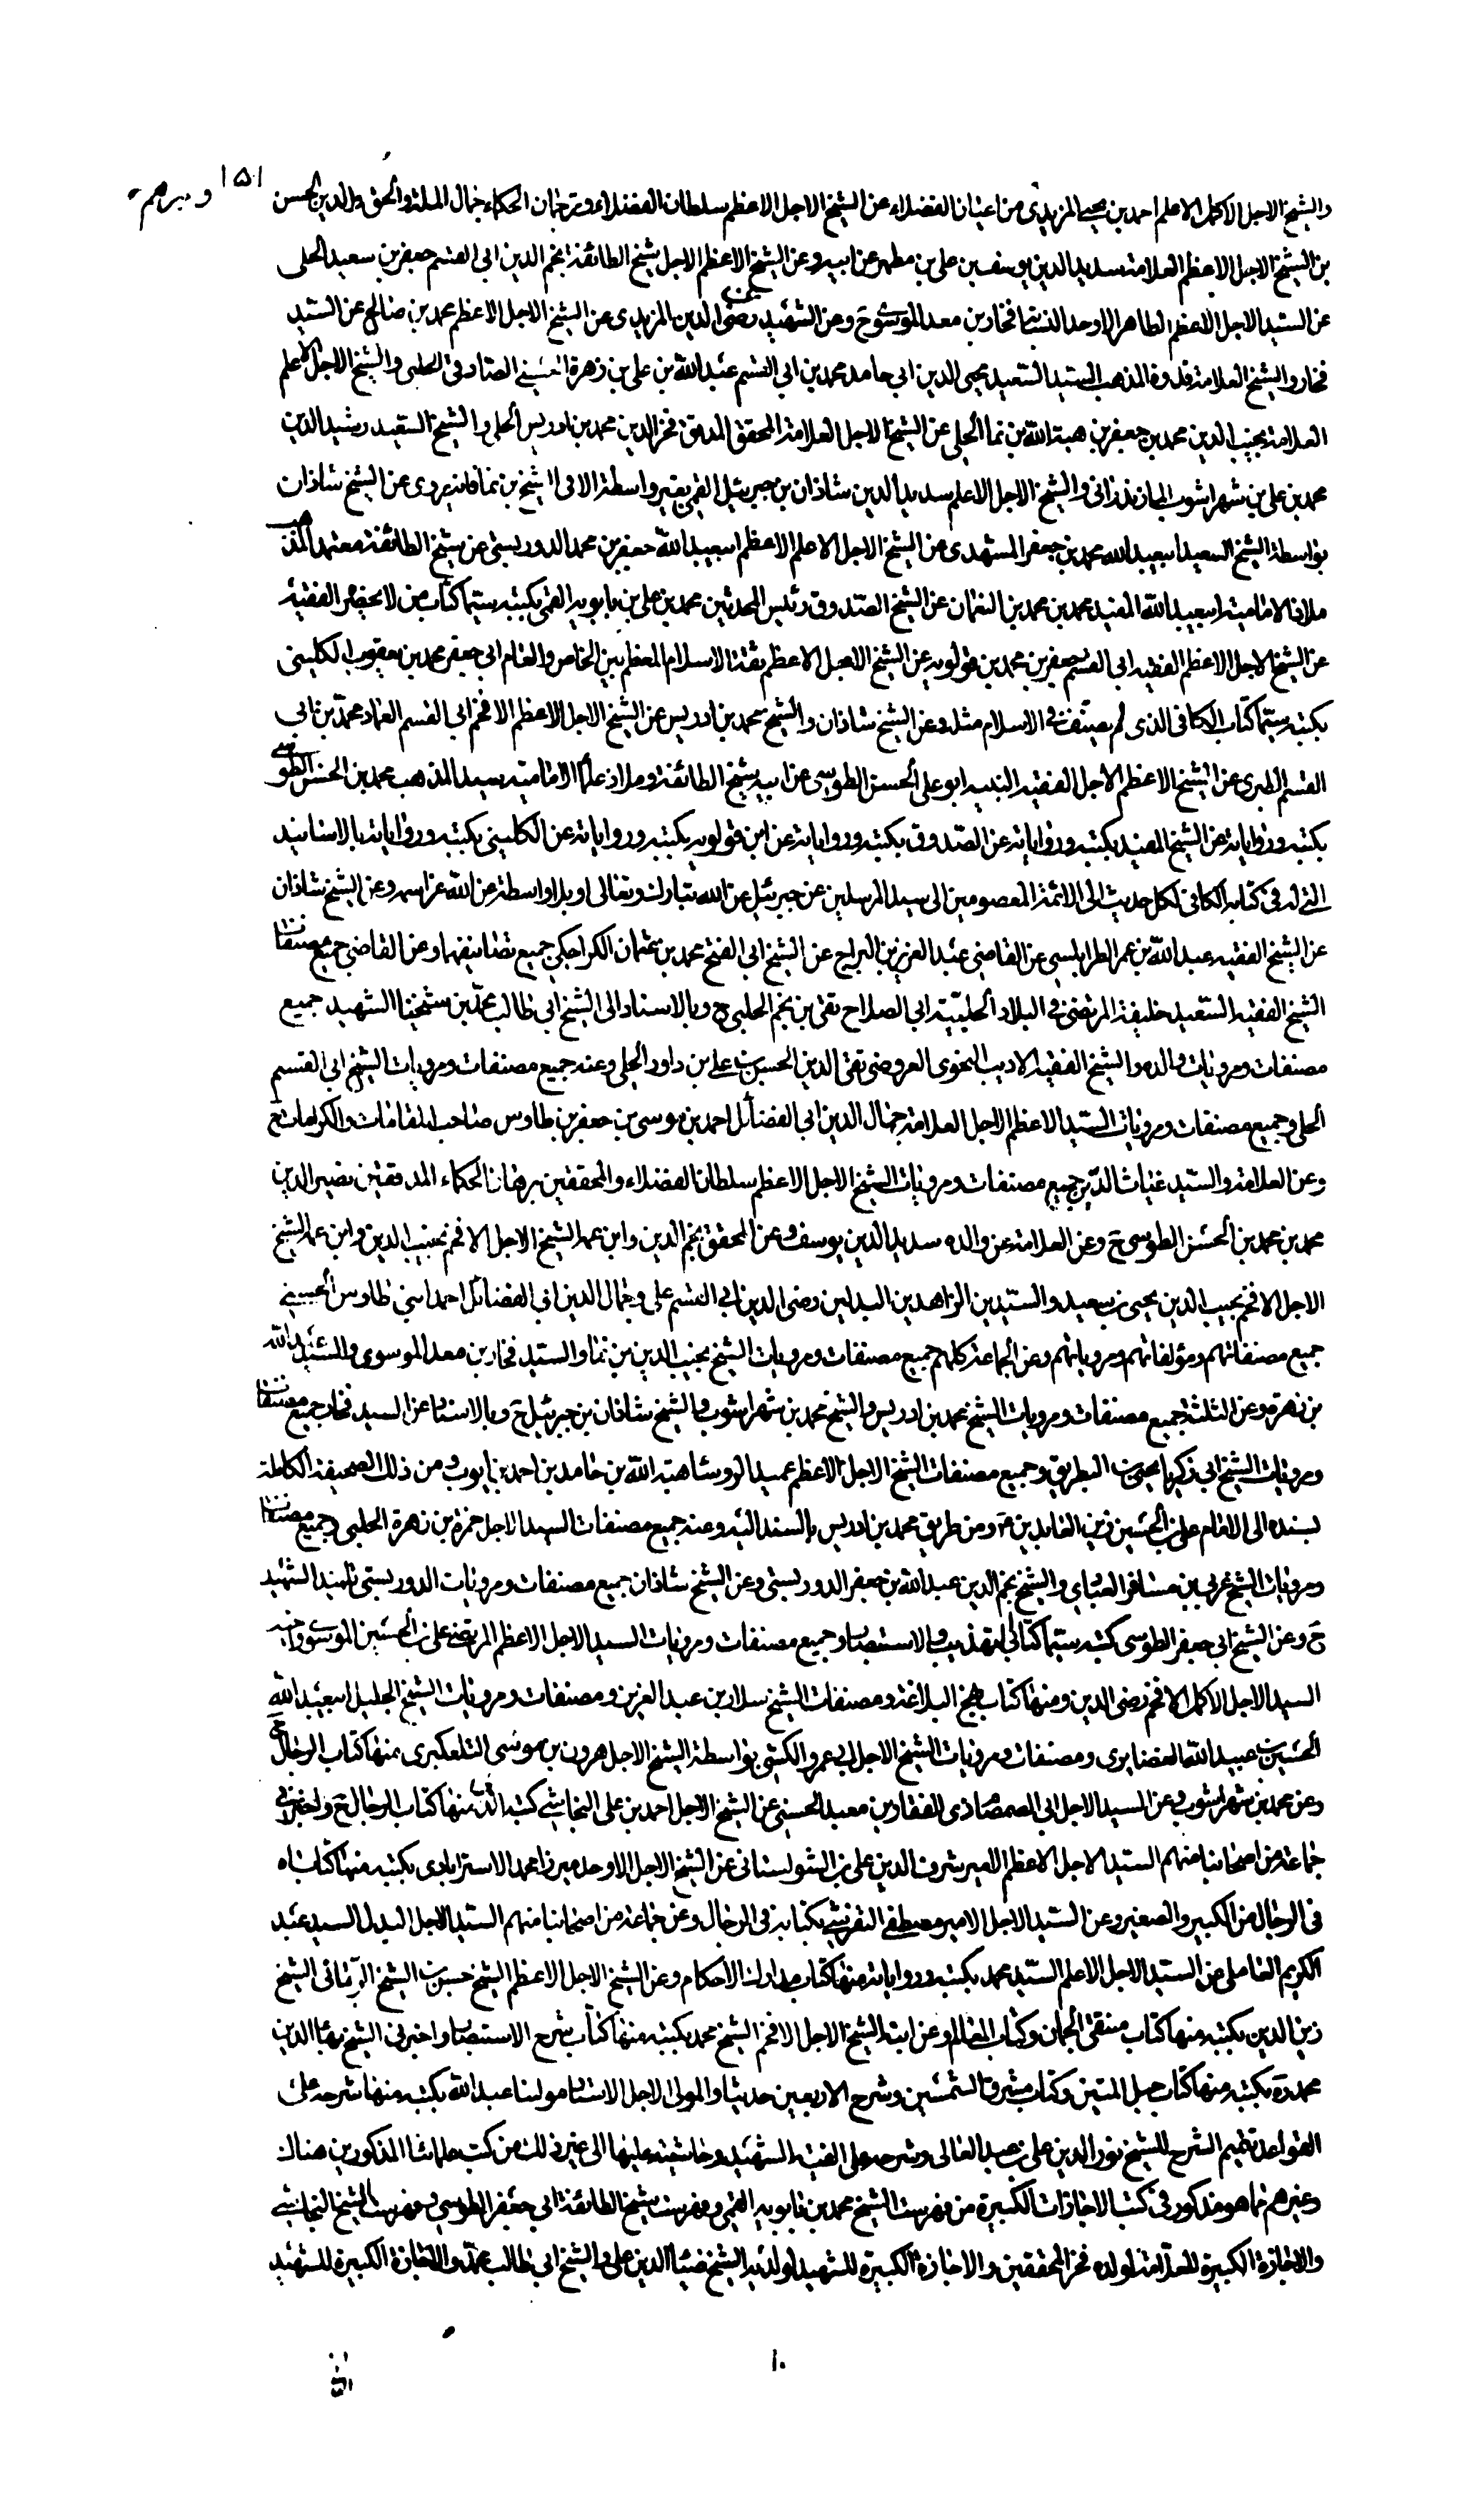 ١٥١
وغيرهم
والشيخ الاجل الاكمل الاعلم احمد بن يحيى المزيدى من اعيان الفضلاء عن الشيخ الاجل الاعظم سلطان الفضلاء وترجمان الحكماء جمال الملة والحق والدين الحسن
بن الشيخ الاجل الاعظم العلامة سديد الدين يوسف بن على بن مطهر عن ابيه وعن الشيخ الاعظم الاجل شيخ الطائفة نجم الدين ابى القسم جعفر بن سعيد الحلى
عن السيد الاجل الاعظم الطاهر الاوحد النسابة فخار بن معد الموسوى ح وعن الشهيد عن رضى الدين المزيدى عن الشيخ الاجل الاعظم محمد بن صالح عن السيد
فخار والشيخ العلامة قدوة المذهب السيد السعيد محيى الدين ابى حامد محمد بن ابى القسم عبد الله بن على بن زهرة الحسينى الصادقى الحلبى والشيخ الاجل الاعلم
العلامة نجيب الدين محمد بن جعفر بن هبة الله بن نما الحلى عن الشيخ الاجل العلامة المحقق المدقق فخر الدين محمد بن ادريس الحلى والشيخ السعيد رشيد الدين
محمد بن على بن شهراشوب المازندرانى والشيخ الاجل الاعلم سديد الدين شاذان بن جبرئيل القمى بغير واسطة الا فى الشيخ بن نما فانه يروى عن الشيخ شاذان
بواسطة الشيخ السعيد ابيعبد الله محمد بن جعفر المشهدى عن الشيخ الاجل الاعلم الاعظم ابيعبد الله جعفر بن محمد الدوريستى عن شيخ الطائفة معتمد المذهب
ملاذ الامامية ابيعبد الله المفيد محمد بن محمد بن النعمان عن الشيخ الصدوق رئيس المحدثين محمد بن على بن بابويه القمى بكتبه سيما كتاب من لا يحضره الفقيه
عن الشيخ الاجل الاعظم الفقيه ابى القسم جعفر بن محمد بن قولويه عن الشيخ الاجل الاعظم ثقة الاسلام المعظم بين الخاص والعام ابى جعفر محمد بن يعقوب الكلينى
بكتبه سيما كتاب الكافى الذى لم يصنف فى الاسلام مثله وعن الشيخ شاذان والشيخ محمد بن ادريس عن الشيخ الاجل الاعظم الافخم ابى القسم العماد محمد بن ابى
القسم الطبرى عن الشيخ الاعظم الاجل الفقيه النبيه ابو على الحسن الطوسى عن ابيه شيخ الطائفة وملاذ علماء الامامية سيد المذهب محمد بن الحسن الطوسى
بكتبه ورواياته عن الشيخ المفيد بكتبه ورواياته عن الصدوق بكتبه ورواياته عن ابن قولويه بكتبه ورواياته عن الكلينى بكتبه ورواياته بالاسانيد
التى له فى كتابه الكافى لكل حديث الى الائمة المعصومين الى سيد المرسلين عن جبرئيل عن الله تبارك وتعالى او بلا واسطة عن الله عز اسمه وعن الشيخ شاذان
عن الشيخ الفقيه عبد الله بن عمر الطرابلسى عن القاضى عبد العزيز بن البراج عن الشيخ ابى الفتح محمد بن عثمان الكراجكى جميع تصانيفهما وعن القاضى جميع مصنفات
الشيخ الفقيه السعيد خليفة المرتضى فى البلاد الحلبية ابى الصلاح تقى بن نجم الحلبى ح وبالاسناد الى الشيخ ابى طالب محمد بن شيخنا الشهيد جميع
مصنفات ومرويات والده والشيخ الفقيه الاديب النحوى العروضى تقى الدين الحسن بن على بن داود الحلى وعنه جميع مصنفات ومرويات الشيخ ابى القسم
الحلى وجميع مصنفات ومرويات السيد الاعظم الاجل العلامة جمال الدين ابى الفضائل احمد بن موسى بن جعفر بن طاوس صاحب المقامات والكرامات ح
وعن العلامة والسيد غياث الدين جميع مصنفات ومرويات الشيخ الاجل الاعظم سلطان الفضلاء والمحققين برهان الحكماء المدققين نصير الدين
محمد بن محمد بن الحسن الطوسى ح وعن العلامة عن والده سديد الدين يوسف وعن المحقق نجم الدين وابن عمه الشيخ الاجل الافخم نجيب الدين وابن عم الشيخ
الاجل الافخم نجيب الدين يحيى بن سعيد والسيدين الزاهدين البدلين رضى الدين ابى القسم على وجمال الدين ابى الفضائل احمد ابنى طاوس الحسينى
جميع مصنفاتهم ومؤلفاتهم ومروياتهم وعن الجماعة كلهم جميع مصنفات ومرويات الشيخ نجيب الدين بن نما والسيد فخار بن معد الموسوى والسيد عبد الله
بن زهرة وعن الثلثة جميع مصنفات ومرويات الشيخ محمد بن ادريس والشيخ محمد بن شهراشوب والشيخ شاذان بن جبرئيل ح وبالاسناد عن السيد فخار جميع مصنفات
ومرويات الشيخ ابى زكريا يحيى بن البطريق وجميع مصنفات الشيخ الاجل الاعظم عميد الرؤسا هبة الله بن حامد بن احمد بن ايوب ومن ذلك الصحيفة الكاملة
بسنده الى الامام على بن الحسين زين العابدين ع ومن طريق محمد بن ادريس بالسند اليه وعنه جميع مصنفات السيد الاجل حمزة بن زهرة الحلبى وجميع مصنفات
ومرويات الشيخ عربى بن مسافر العبادى والشيخ نجم الدين عبد الله بن جعفر الدوريستى وعن الشيخ شاذان جميع مصنفات ومرويات الدوريستى تلميذ الشهيد
ح وعن الشيخ ابى جعفر الطوسى كتبه سيما كتابى التهذيب والاستبصار وجميع مصنفات ومرويات السيد الاجل الاعظم المرتضى على بن الحسين الموسوى واخيه
السيد الاجل الاكمل الافخم رضى الدين ومنها كتاب نهج البلاغة ومصنفات الشيخ سلار بن عبد العزيز ومصنفات ومرويات الشيخ الجليل ابيعبد الله
الحسين بن عبيد الله الغضايرى ومصنفات ومرويات الشيخ الاجل ابى عمرو الكشى بواسطة الشيخ الاجل هرون بن موسى التلعكبرى منها كتاب الرجال ح
وعن محمد بن شهراشوب عن السيد الاجل ابى الصمصام ذى الفقار بن معبد الحسنى عن الشيخ الاجل احمد بن على النجاشى كتبه التى منها كتاب الرجال ح واخبرنى
جماعة من اصحابنا منهم السيد الاجل الاعظم الامير شرف الدين على الشولستانى عن الشيخ الاجل الاوحد ميرزا محمد الاسترابادى بكتبه منها كتاباه
فى الرجال من الكبير والصغير وعن السيد الاجل الامير مصطفى التفرشى بكتابه فى الرجال وعن جماعة من اصحابنا منهم السيد الاجل البدل السيد عبد
الكريم العاملى عن السيد الاجل الاعلم السيد محمد بكتبه ورواياته منها كتاب مدارك الاحكام وعن الشيخ الاجل الاعظم الشيخ حسن بن الشيخ الربانى الشيخ
زين الدين بكتبه منها كتاب منتقى الجمان وكتاب المعالم وعن ابنه الشيخ الاجل الافخم الشيخ محمد بكتبه منها كتاب شرح الاستبصار واخبرنى الشيخ بهاء الدين
محمد ره بكتبه منها كتاب حبل المتين وكتاب مشرق الشمسين وشرح الاربعين حديثا والمولى الاجل الاستاد مولينا عبد الله بكتبه منها شرحه على
القواعد تتميم الشرح للشيخ نور الدين على بن عبد العالى وشرحه على الفية الشهيد وحاشيته عليها الى غير ذلك من كتب علمائنا المذكورين هناك
وغيرهم مما هو مذكور فى كتب الاجازات الكبيرة من فهرست الشيخ محمد بن بابويه القمى وفهرست شيخ الطائفة ابى جعفر الطوسى وفهرست الشيخ النجاشى
والاجازة الكبيرة للعلامة لولده فخر المحققين والاجازة الكبيرة للشهيد لولديه الشيخ ضياء الدين على والشيخ ابى طالب محمد والاجازة الكبيرة للشهيد
١٠